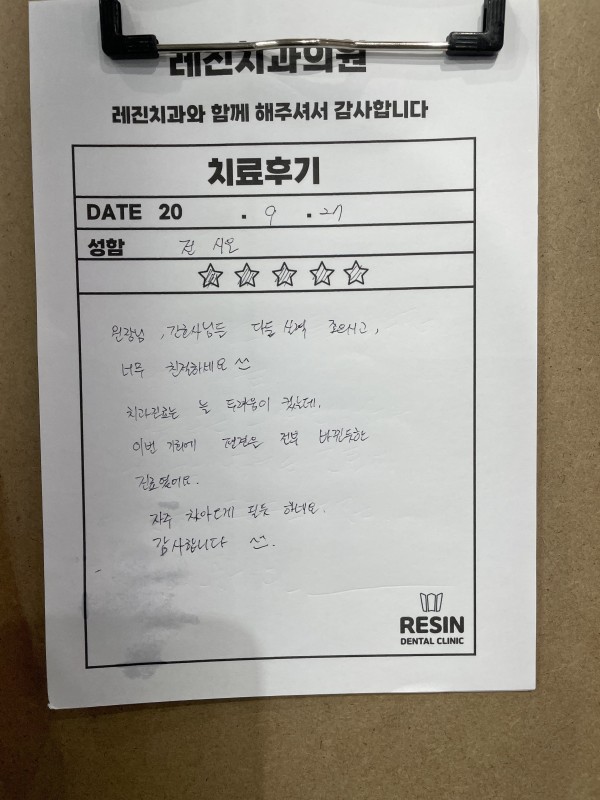 레진치과의원
레진치과와 함께 해주셔서 감사합니다
치료후기
DATE 20 . 9 . 27
성함 전 시오
원장님, 간호사님들 다들 실력 좋으시고,
너무 친절하세요 ^^
치과진료는 늘 두려움이 컸는데,
이번 기회에 편견을 전부 바뀐듯한
진료였어요.
자주 찾아뵐게 될듯 하네요.
감사합니다 ^^.
RESIN
DENTAL CLINIC